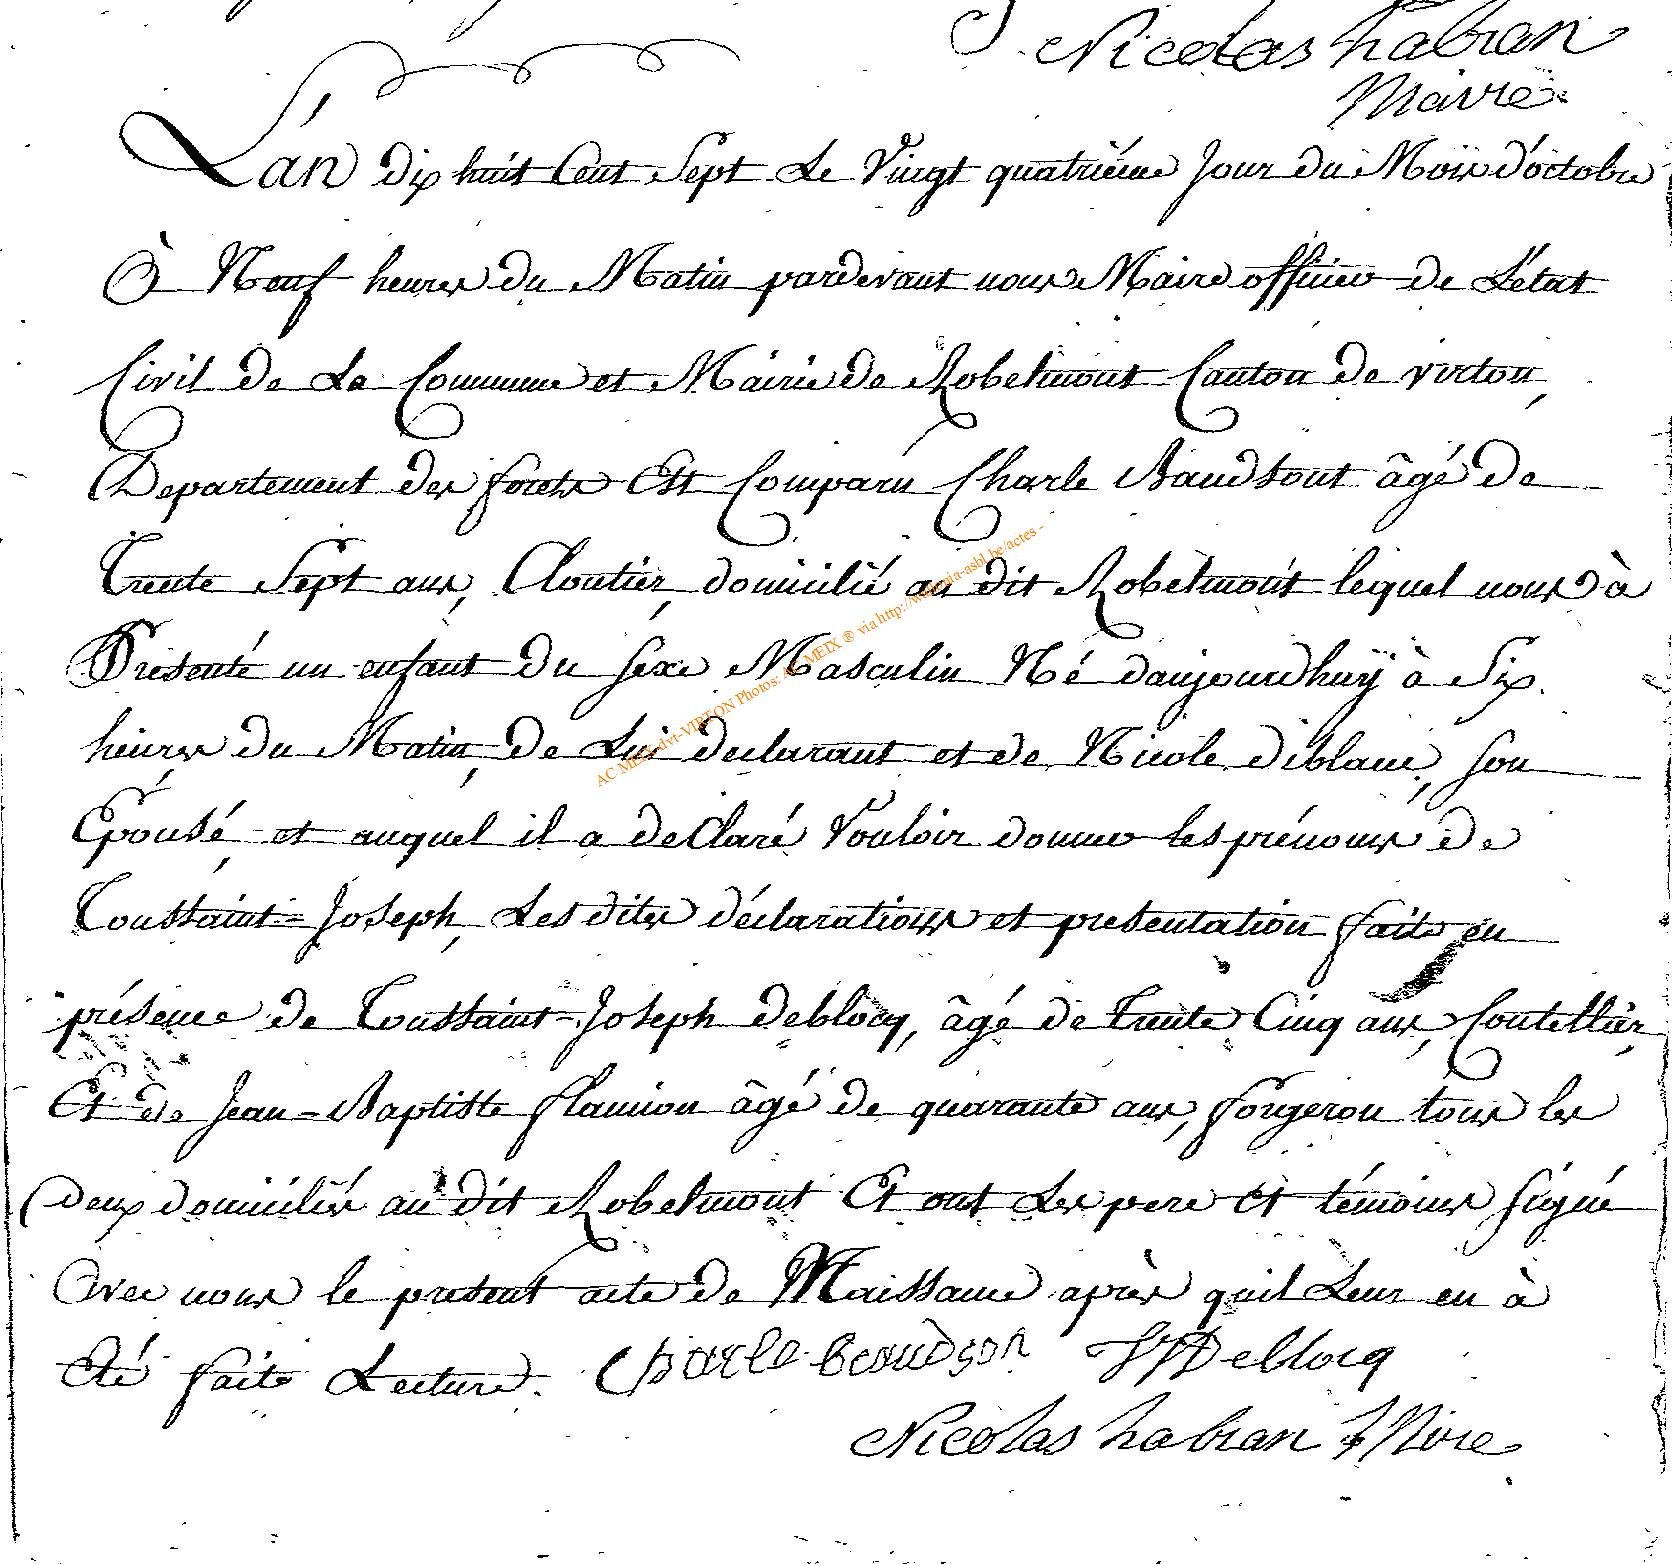 Nicolas habran
Maire
L'an dix huit Cent Sept Le Vingt quatrième Jour du Mois d'octobre
à Neuf heures du Matin pardevant nous Maire officier de L'état
Civil de La Commune et Mairie de Robelmont Canton de virton,
Departement des forets Est Comparu Charle Baudsont âgé de
Trente Sept ans, Cloutier, domicilié au dit Robelmont lequel nous à
Presenté un enfant du sexe Masculin Né daujourdhuÿ à Six
heures du Matin, de Lui declarant et de Nicole diblanc, son
Epousé, et auquel il a declaré Vouloir donner les prénoms de
Toussaint=Joseph, Les dites déclarations et presentation faite en
présence de Toussaint=Joseph deblocq, âgé de trente Cinq ans, Coutellier,
Et de Jean=Baptiste flamion âgé de quarante ans, forgeron tous les
deux domiciliés au dit Robelmont Et ont Les pere et témoins signé
Avec nous le present acte de Naissance après quil Leur en à
été faite Lecture. Charle baudson Deblocq
Nicolas habran Mire
AC MEIX-dvt-VIRTON Photos: AC MEIX ® via http://www.gia-asbl.be/actes -